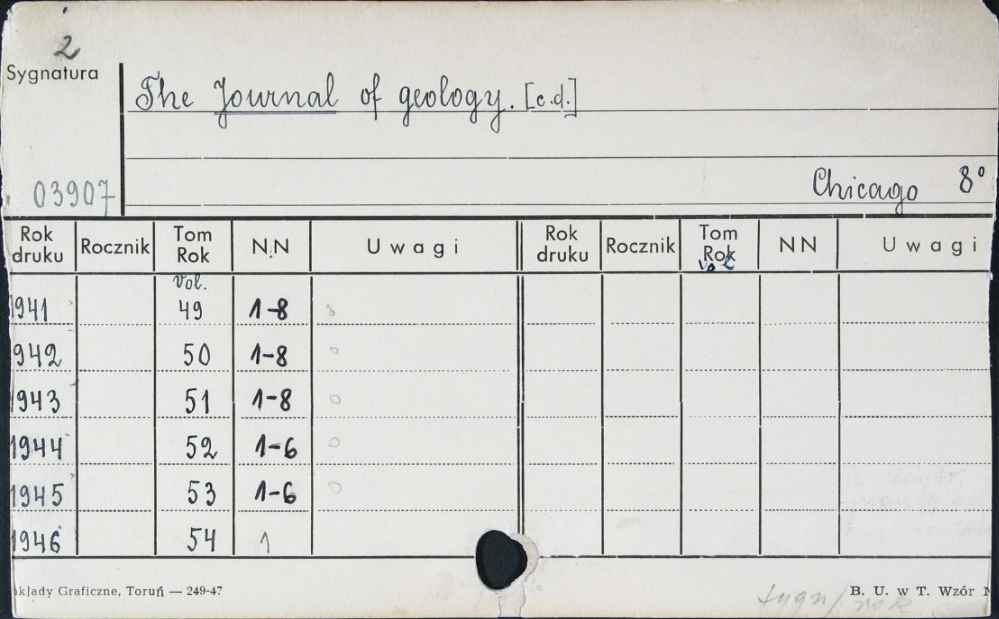 2
Sygnatura
The Journal of geology. [c.d.]
03907
Chicago 8°
Rok druku Rocznik Tom Rok N.N Uwagi Rok druku Rocznik Tom Rok NN Uwagi
Vol.
1941 49 1-8
942 50 1-8
1943 51 1-8
1944 52 1-6
1945 53 1-6
1946 54 1
kłady Graficzne, Toruń — 249-47 B. U. w T. Wzór